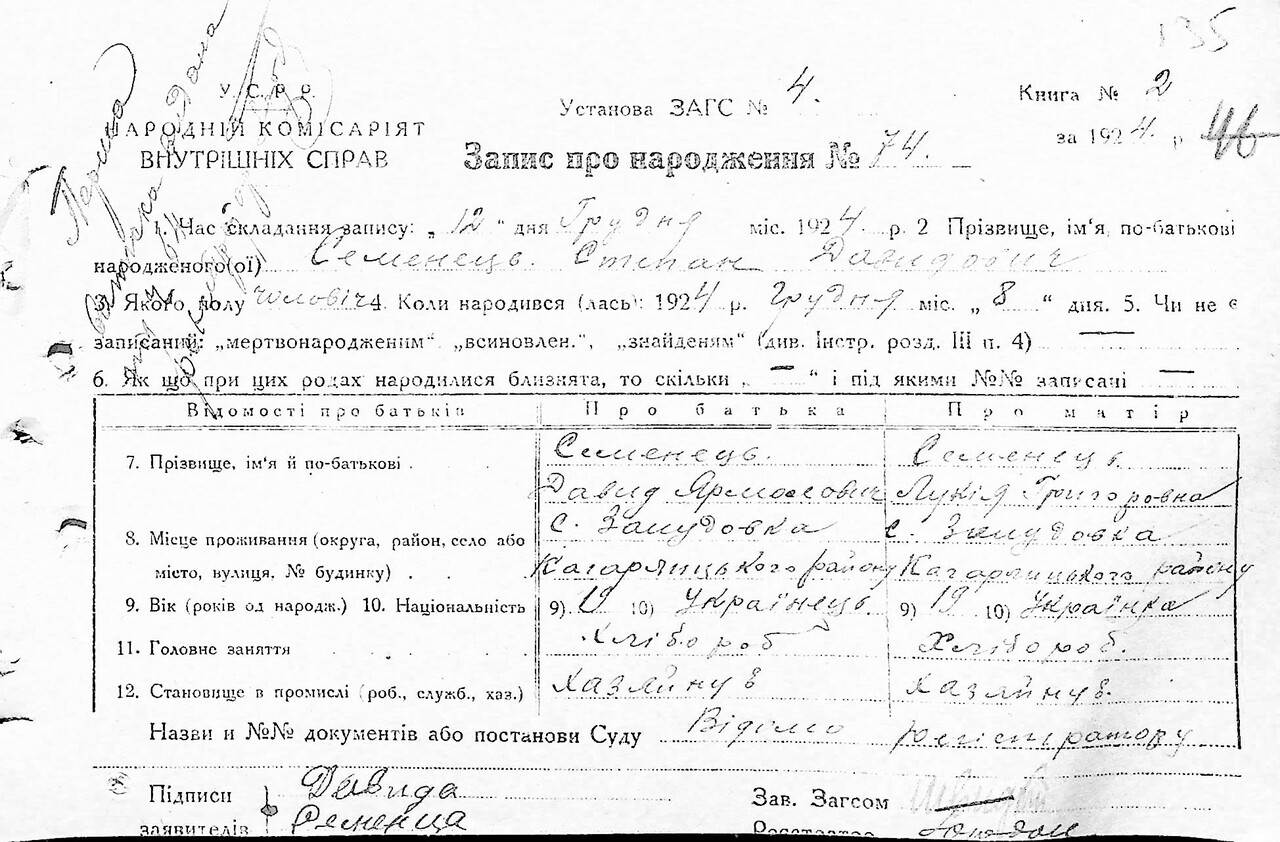 135
У. С. Р. Р.
НАРОДНІЙ КОМІСАРІЯТ
ВНУТРІШНІХ СПРАВ
Установа ЗАГС № 4.
Книга № 2
за 1924 р. 46
Запис про народження № 74.
Перша виписка видана
1. Час складання запису: „ 12 “ дня Грудня міс. 1924 р. 2 Прізвище, ім'я, по-батькові
народженого(ої) Семенець Степан Давидович
3. Якого полу чоловіч 4. Коли народився (лась): 1924 р. Грудня міс. „ 8 “ дня. 5. Чи не є
записаний: „мертвонародженим“ „всиновлен.“, „знайденим“ (див. Інстр. розд. III п. 4) —
6. Як що при цих родах народилися близнята, то скільки „ — “ і під якими №№ записані —
Відомості про батьків Про батька Про матір
7. Прізвище, ім'я й по-батькові Семенець. Семенець
Давид Ярмолович Лукія Григоровна
8. Місце проживання (округа, район, село або с. Замудовка с. Замудовка
місто, вулиця, № будинку) Кагарлицького району Кагарлицького району
9. Вік (років од народж.) 10. Національність 9) 19 10) Українець 9) 19 10) Українка
11. Головне заняття Хлібороб Хлібороб.
12. Становище в промислі (роб., служб., хаз.) Хазяйнув Хазяйнув.
Назви и №№ документів або постанови Суду Відомо регістратору
Підписи Давида Зав. Загсом
заявителів Семенца